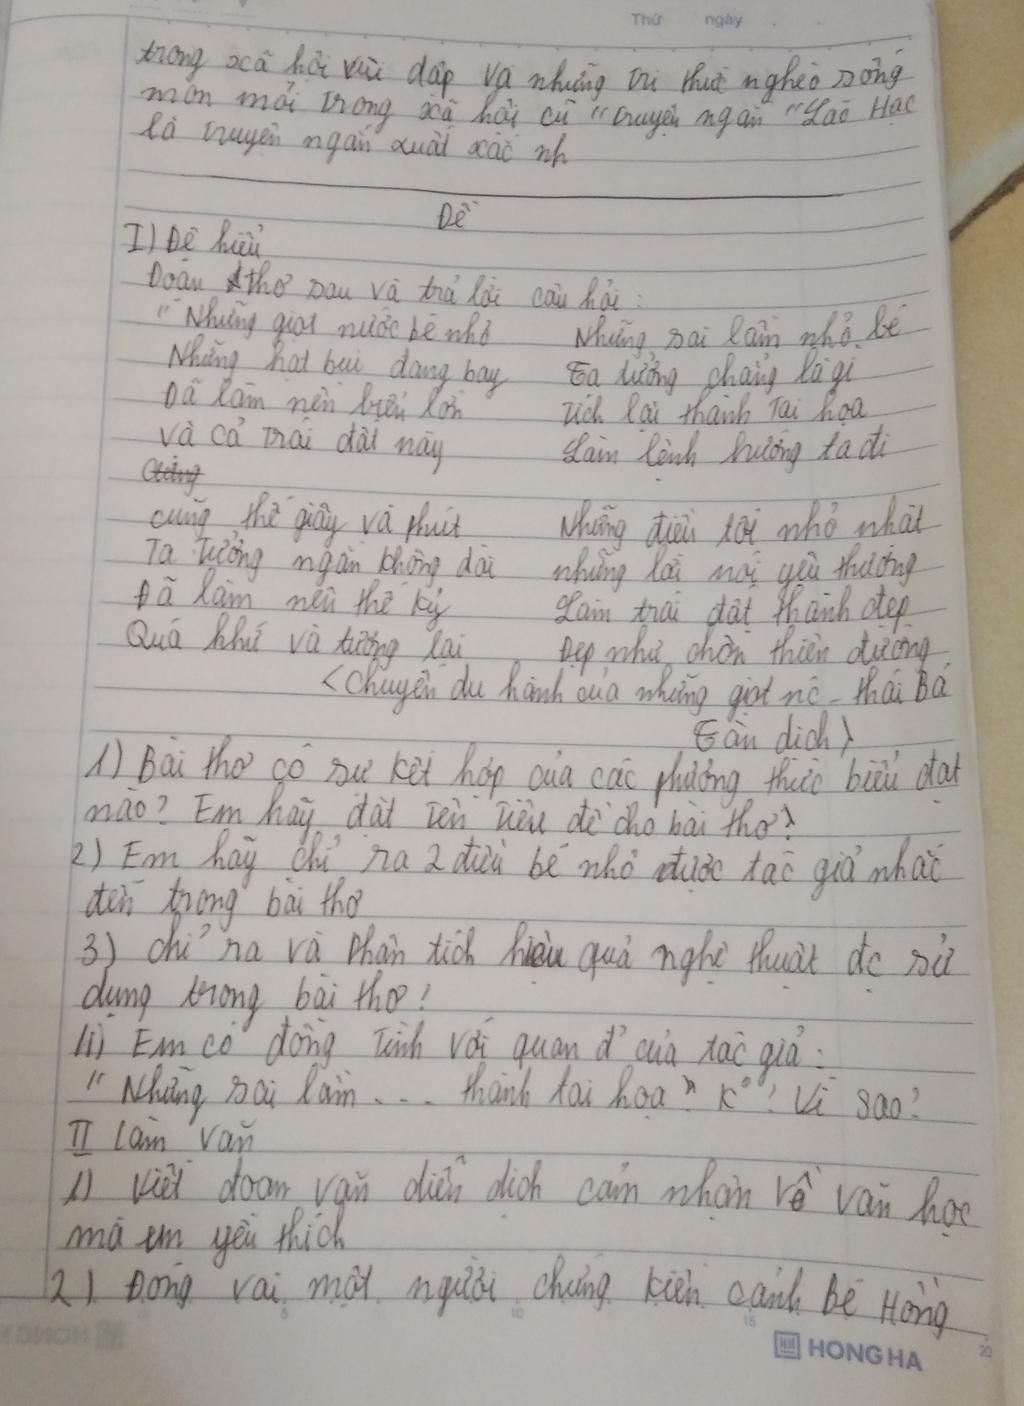 Thứ ngày
trong xã hội vùi dập và những trí thức nghèo sống
mòn mỏi trong xã hội cũ "truyện ngắn "Lão Hạc
là truyện ngắn xuất xắc nh
Đề
I) Đọc hiểu
Đoạn thơ sau và trả lời câu hỏi :
"Những giọt nước bé nhỏ
Những hạt bụi đang bay
Đã làm nên biển lớn
và cả trái đất này
cũng thế giây và phút
Ta tưởng ngắn không dài
Đã làm nên thế kỷ
Quá khứ và tương lai
Những sai lầm nhỏ bé
Ta tưởng chẳng là gì
tích lại thành tai họa
Làm lệnh hướng ta đi
Những điều tốt nhỏ nhất
những lời nói yêu thương
Làm trái đất thành đẹp
Đẹp như chốn thiên đường
<Chuyến du hành của những giọt nc - thái Bá
Tân dịch>
1) Bài thơ có sự kết hợp của các phương thức biểu đạt
nào? Em hãy đặt tên tiêu đề cho bài thơ?
2) Em hãy chỉ ra 2 điều bé nhỏ được tác giả nhắc
đến trong bài thơ
3) chỉ ra và phân tích hiệu quả nghệ thuật đc sử
dụng trong bài thơ?
4) Em có đồng tình với quan đ' của tác giả :
"Những sai lầm .... thành tai họa" K°? Vì sao?
II Làm văn
1) Viết đoạn văn diễn dịch cảm nhận về văn học
mà em yêu thích
2) Đóng vai một người chứng kiến cảnh Bé Hồng
5 10 15 20
HONG HA